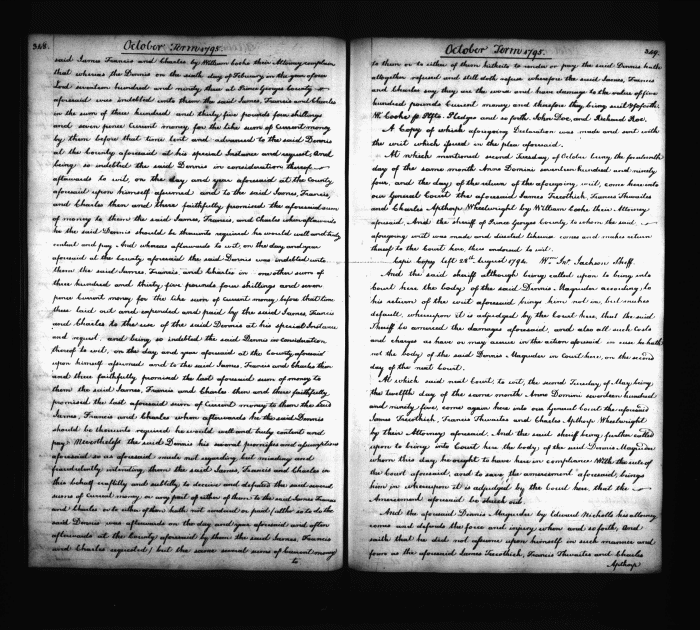 348.
October Term 1795.
said James Francis and Charles by William Cooke their Attorney complain
that whereas the Dennis on the sixth day of February in the year of our
Lord seventeen hundred and ninety, there at Prince Georges County
aforesaid was indebted unto them the said James, Francis and Charles
in the sum of three hundred and thirty five pounds four shillings
and seven pence current money, for the like sum of Current money
by them before that time lent and advanced to the said Dennis
at the County aforesaid at his special Instance and request, And
being so indebted the said Dennis in consideration thereof
afterwards to wit, on the day and year aforesaid at the County
aforesaid upon himself assumed and to the said James, Francis,
and Charles then and there faithfully promised the aforesaid sum
of money to them the said James, Francis, and Charles when afterwards
he the said Dennis should be thereunto required he would well and truly
content and pay. And whereas afterwards to wit, on the day and year
aforesaid at the County aforesaid the said Dennis was indebted unto
them the said James, Francis, and Charles in one other sum of
three hundred and thirty five pounds four shillings and seven
pence Current money for the like sum of Current money before that time
there laid out and expended and paid by the said James, Francis
and Charles to the use of the said Dennis at his special Instance
and request, and being so indebted the said Dennis in consideration
thereof to wit, on the day and year aforesaid at the County aforesaid
upon himself assumed and to the said James, Francis and Charles then
and there faithfully promised the last aforesaid sum of money to
them the said James, Francis and Charles then and there faithfully
promised the last aforesaid sum of Current money to them the said
James, Francis and Charles when afterwards he the said Dennis
should be thereunto required he would well and truly content and
pay. Nevertheless the said Dennis his several promises and assumptions
aforesaid so as aforesaid made not regarding but minding and
fraudulently intending them the said James, Francis and Charles in
this behalf craftily and subtilly to deceive and defraud the said several
sums of Current money or any part of either of them to the said James Francis
and Charles or to either of them hath not rendered or paid (altho so to do the
said Dennis was afterwards on the day and year aforesaid and often
afterwards at the County aforesaid by them the said James, Francis
and Charles requested) but the same several sums of Current money
to
October Term 1795.
349.
to them or to either of them hitherto to render or pay, the said Dennis hath
altogether refused and still doth refuse wherefore the said James, Francis
and Charles say, they are the worse and have damage to the value of five
hundred pounds Current money, and therefore they bring suit &soforth.
W. Cooke pr. Pltfs. Pledges and so forth John Doe, and Richard Roe.
A Copy of which aforegoing Declaration was made and sent with
the writ which issued in the plea aforesaid.
At which mentioned second Tuesday of October being the fourteenth
day of the same month Anno Domini seventeen hundred and ninety
four, and the day of the return of the aforegoing writ, come here into
our General Court the aforesaid James Trecothick, Francis Thwaites
and Charles Apthorp Wheelwright by William Cooke their Attorney
aforesaid. And the sheriff of Prince Georges County, to whom the said
aforegoing writ was made and directed likewise comes and makes return
thereof to the Court here, thus endorsed to wit.
Cepi Copy left 28th. August 1794. Wm. Jackson Sheff.
And the said sheriff although being called upon to bring into
Court here the body of the said Dennis Magruder according to
his return of the writ aforesaid brings him not in, but makes
default, whereupon it is adjudged by the Court here, that the said
Sheriff be amerced the damages aforesaid, and also all such costs
and charges as have or may accrue in the action aforesaid in case he hath
not the body of the said Dennis Magruder in Court here, on the second
day of the next Court.
At which said next Court, to wit, the second Tuesday of May, being
the twelfth day of the same month Anno Domini seventeen hundred
and ninety five, come again here into our General Court the aforesaid
James Trecothick, Francis Thwaites and Charles Apthorp Wheelwright
by their Attorney aforesaid. And the said sheriff being further called
upon to bring into Court here the body of the said Dennis Magruder
whom this day he ought to have here in compliance with the rule of
the Court aforesaid, and to save the amercement aforesaid, brings
him in whereupon it is adjudged by the Court here, that the
Amercement aforesaid be struck out.
And the aforesaid Dennis Magruder by Edward Nicholls his attorney
comes and defends the force and injury when and so forth, And
saith that he did not assume upon himself in such manner and
form as the aforesaid James Trecothick, Francis Thwaites and Charles
Apthorp